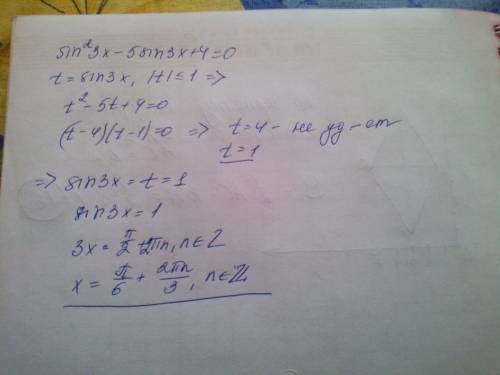 sin²3x-5sin3x+4=0
t=sin3x, |t|≤1 =>
t²-5t+4=0
(t-4)(t-1)=0 => t=4 - не уд-ет
t=1
=> sin3x=t=1
sin3x=1
3x=π/2+2πn, n∈Z
x=π/6+2πn/3, n∈Z